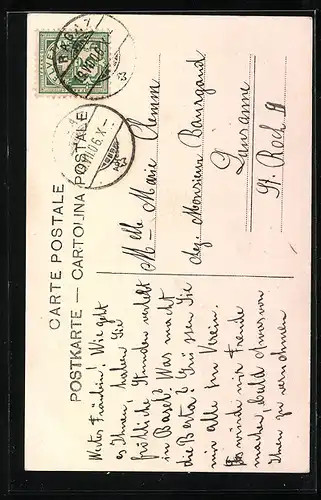 CARTE POSTALE
POSTKARTE — CARTOLINA POSTALE
Melle Marie Clemm
chez Monsieur Baurgaud
Lausanne
St. Roch 11
Wertes Fräulein! Wie geht
es Ihnen, haben Sie
fröhliche Stunden verlebt
in Basel? Was macht
die Berta? Grüssen Sie
mir alle im Verein.
Es würde mir Freude
machen, bald etwas von
Ihnen zu vernehmen